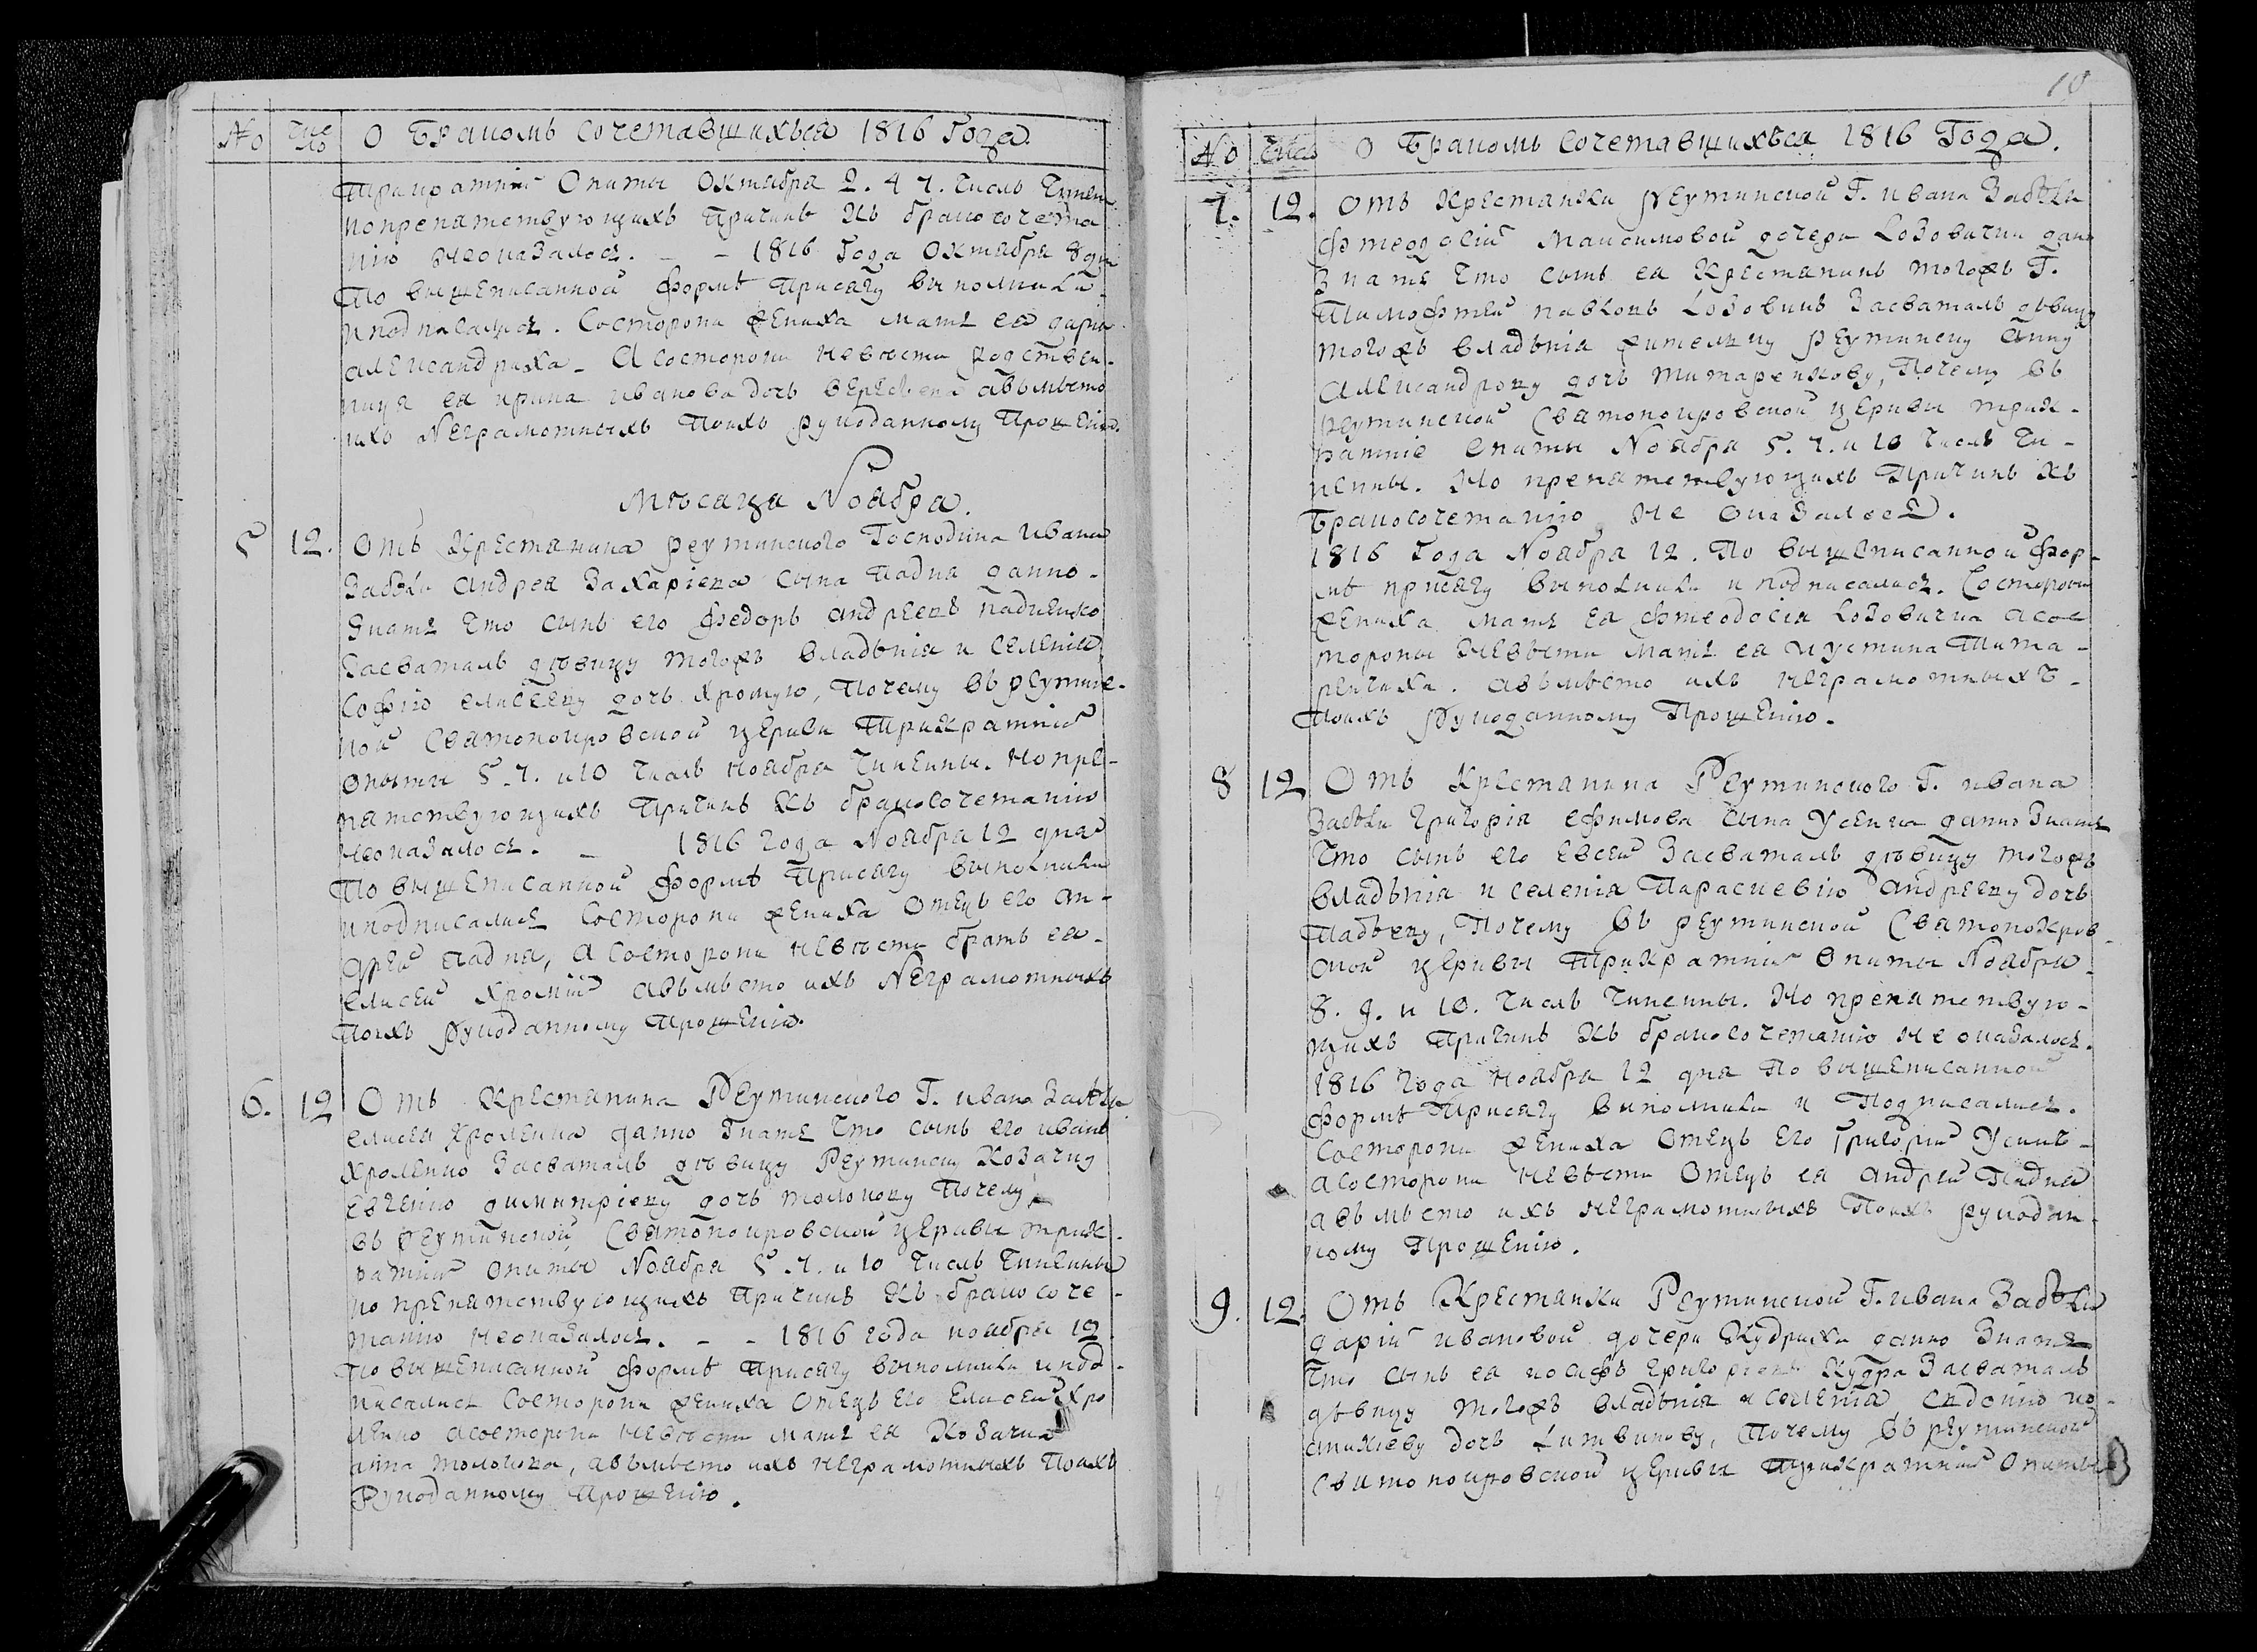 No Число О Бракомъ сочетавщихъся 1816 Года.
Трикратній Опиты Октября 2. 4 7. числъ Чинены
но препятствующихъ Причинъ Къ бракосочета
нію неоказалось. - - 1816 Года Октября 8 дня
По вышеписанной формѣ Присягу выполнили
и подписались. Состороны жениха мать ея дарія
александриха - А состороны невѣсты родствен-
ница ея ирина иванова дочь авъмѣсто
ихъ Неграмотныхъ Поихъ рукоданному Прошенію.
Мѣсяца Ноября.
5 12. Отъ Крестянина реутинского Господина ивана
Забѣли андрея Захаріева сына Падня данно
Знать Что сынъ его федоръ андреевъ падненко
Засваталъ дѣвицу тогожъ владѣнія и селенія
Софію елисееву дочь хромую, Почему въ реутинс-
кой Святопокровской церкви Трикратній
Опыты 5. 7. и 10 числъ ноября чинены. Но пре-
пятствующихъ Причинъ Къ бракосочетанію
неоказалось. - 1816 года Ноября 12 дня
По вышеписанной формѣ Присягу выполнили
и подписались Состороны жениха Отецъ его ан-
дрей падня, а состороны невѣсты братъ ея
елисей хромій авъмѣсто ихъ Неграмотныхъ
Поихъ рукоданному Прошенію.
6. 12 Отъ Крестянина Реутинского Г. ивана Забѣли
елисея хроменка данно Знать Что сынъ его иванъ
хроменко Засваталъ дѣвицу Реутинску Козачку
евгенію димитріеву дочь толокову Почему
въ реутинской Святопокровской церкви трик-
ратній опиты Ноября 5. 7. и 10 числъ Чинены
но препятствующихъ Причинъ Къ бракосоче-
танію неоказалось. - - 1816 года ноября 12
По вышеписанной формѣ Присягу выполнили и под-
писались Состороны жениха Отецъ его Елисей Хро
менко асостороны невѣсты мать ея Козачка
анна толокова, авъмѣсто ихъ неграмотныхъ Поихъ
Рукоданному Прошенію.
10
No Число О Бракомъ сочетавщихъся 1816 Года.
7. 12. Отъ Крестянки Реутинской Г. ивана Забѣли
фтеодосіи Максимовой дочери Лозовички данно
Знать Что сынъ ея Крестянинъ тогожъ Г.
Тимофтей павловъ Лозовикъ Засваталъ дѣвицу
тогожъ владѣнія жителку реутинску анну
александрову дочь титаренкову, Почему въ
реутинской Святопокровской церкви трик-
ратніе Опиты Ноября 5. 7. и 10 числъ Чи-
нены. Но препятствующихъ Причинъ Къ
Бракосочетанію не оказалось.
1816 Года Ноября 12. По вышеписанной фор-
мѣ присягу выполнили и подписались. Состороны
жениха мать ея фтеодосія Лозовичка асос
тороны невѣсты мать ея иустина Тита-
ренчиха. авъмѣсто ихъ неграмотныхъ
Поихъ Рукоданному Прошенію.
8 12 Отъ Крестянина Реутинского Г. ивана
Забѣли григорія ефимова сына Усенка данно Знать
Что сынъ его евсей Засваталъ дѣвицу тогожъ
владѣнія и селенія Параскевію андрееву дочь
Падневу, Почему въ реутинской Святопокров
ской церкви Трикратній Опиты Ноября
8. 9. и 10. числъ чинены. Но препятствую-
щихъ Причинъ Къ бракосочетанію не оказалось.
1816 года ноября 12 дня По вышеписанной
формѣ Присягу виполнили и Подписались.
Состороны жениха Отецъ его Григорій
асостороны невѣсты Отецъ ея андрей Падня
авъмѣсто ихъ неграмотныхъ Поихъ рукодан
ному Прошенію.
9. 12. Отъ Крестянки Реутинской Г. ивана Забѣли
даріи ивановой дочери Кудрихи данно Знать
Что сынъ ея иосифъ григоріевъ Кудра Засваталъ
дѣвицу тогожъ владѣнія и селенія евдокію
дочь Литвинову, Почему въ реутинской
Святопокровской церкви Трикратній Опиты